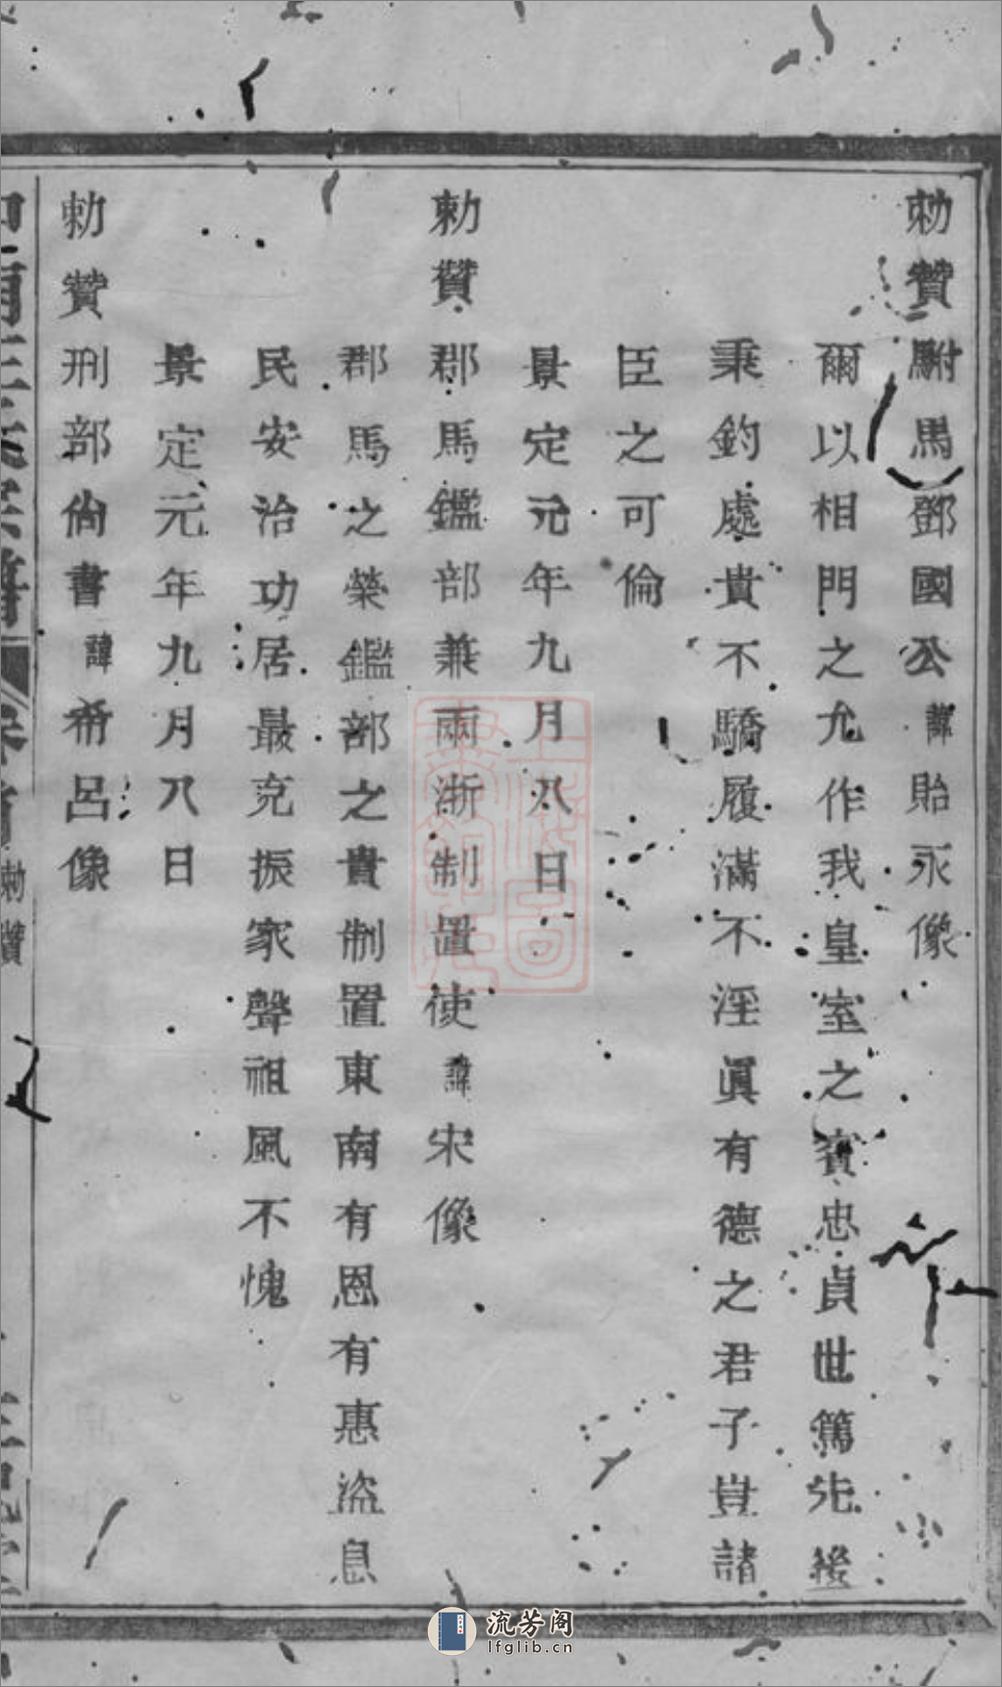 勅贊駙馬鄧國公諱貽永像
爾以相門之允作我皇室之賓忠貞世篤先後
秉鈞處貴不驕履滿不淫眞有德之君子豈諸
臣之可倫
景定元年九月八日
勅贊郡馬鑑部兼兩浙制置使諱宋像
郡馬之榮鑑部之貴制置東南有恩有惠盜息
民安治功居最克振家聲祖風不愧
景定元年九月八日
勅贊刑部尙書諱希呂像
勅贊
流芳阁
lfglib.cn